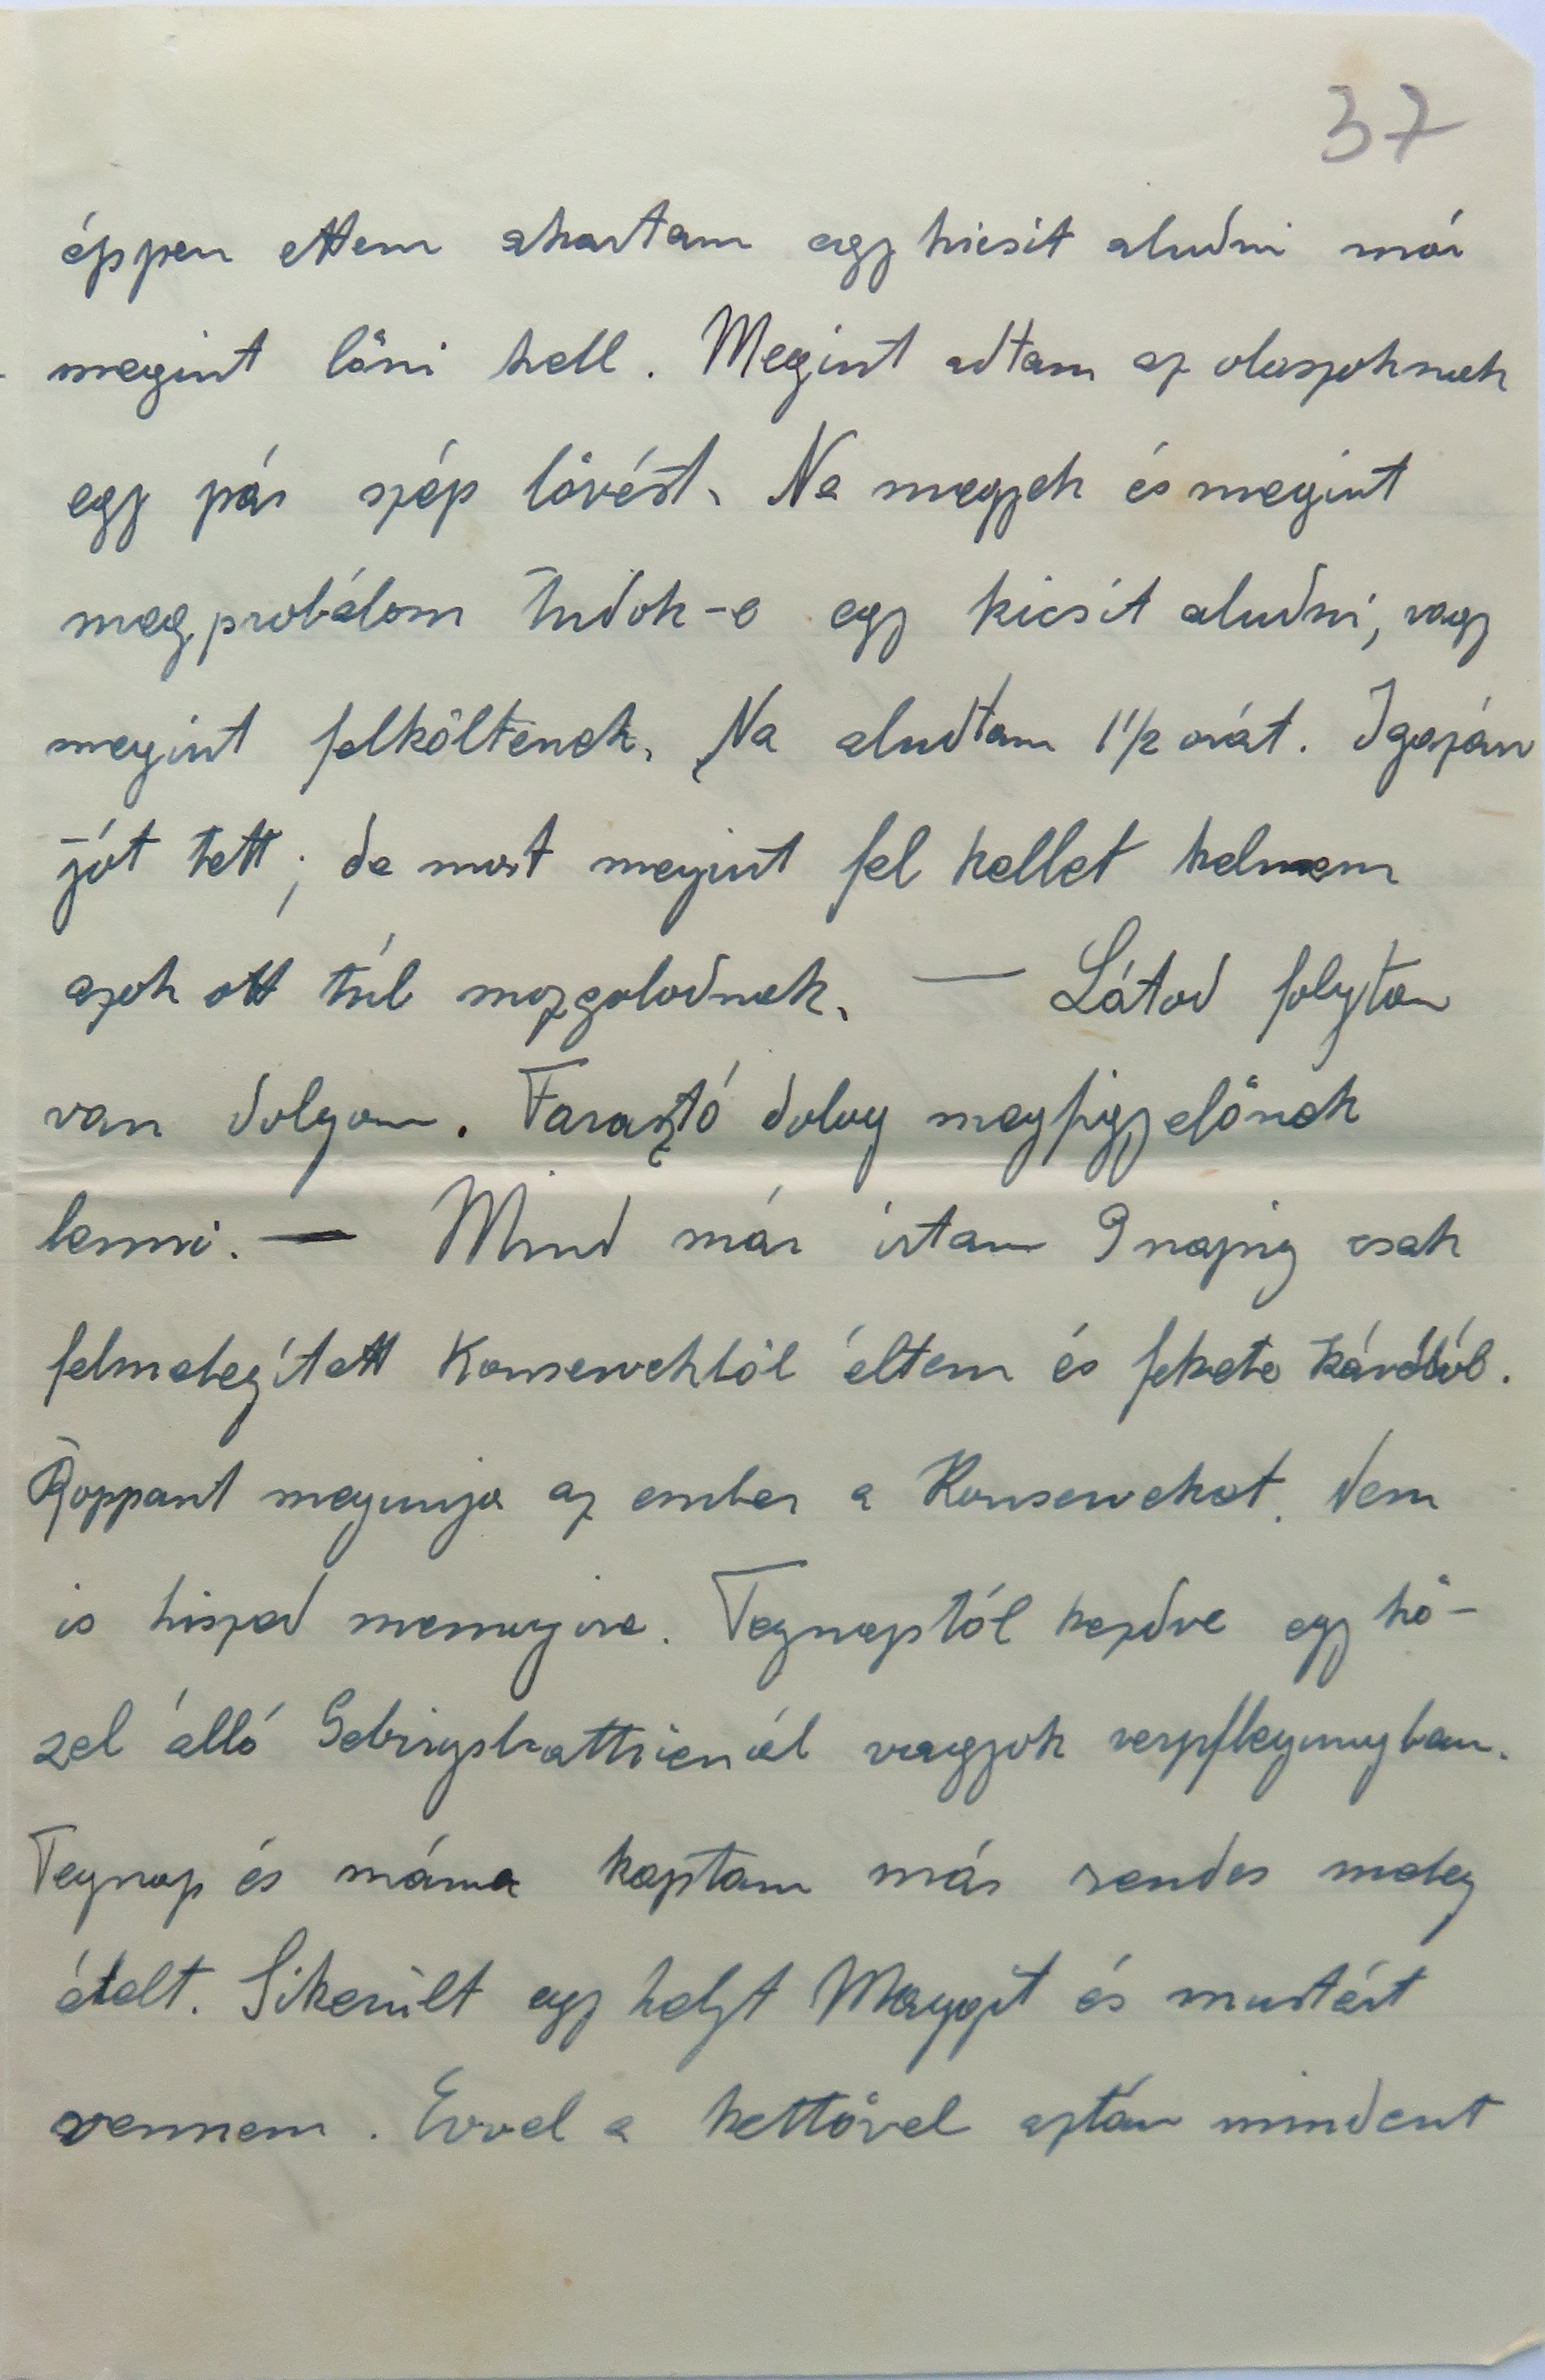 37
éppen ettem akartam egy kicsit aludni már
megint lőni kell. Megint adtam az olaszoknak
egy pár szép lövést. Na megyek és megint
megprobálom tudok-e egy kicsit aludni, vagy
megint felköltenek. Na aludtam 1 1/2 orát. Igazán
jót tett; de most megint fel kellet kelnem
azok ott túl mozgolodnak. — Látod folyton
van dolgom. Farasztó dolog megfigyelőnek
lenni. — Mind már irtam 9 napig csak
felmelegített Konservektöl éltem és fekete kávéból.
Roppant megunja az ember a Konserveket. Nem
is hiszed mennyire. Tegnaptól kezdve egy kö-
zel álló Gebirgsbatterienál vagyok verpflegungban.
Tegnap és máma kaptam már rendes meleg
ételt. Sikerült egy helyt Maggit és mustárt
vennem. Evvel a kettővel aztán mindent